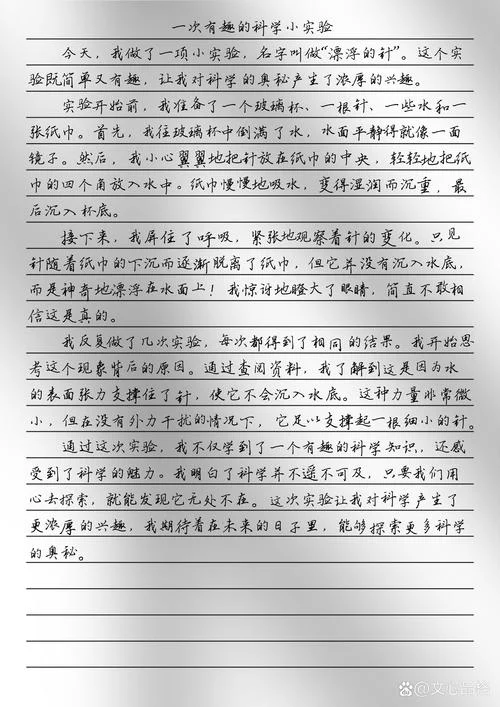 一次有趣的科学小实验
今天，我做了一项小实验，名字叫做“漂浮的针”。这个实
验既简单又有趣，让我对科学的奥秘产生了浓厚的兴趣。
实验开始前，我准备了一个玻璃杯、一根针、一些水和一
张纸巾。首先，我往玻璃杯中倒满了水，水面平静得就像一面
镜子。然后，我小心翼翼地把针放在纸巾的中央，轻轻地把纸
巾的四个角放入水中。纸巾慢慢地吸水，变得湿润而沉重，最
后沉入杯底。
接下来，我屏住了呼吸，紧张地观察着针的变化。只见
针随着纸巾的下沉而逐渐脱离了纸巾，但它并没有沉入水底，
而是神奇地漂浮在水面上！我惊讶地瞪大了眼睛，简直不敢相
信这是真的。
我反复做了几次实验，每次都得到了相同的结果。我开始思
考这个现象背后的原因。通过查阅资料，我了解到这是因为水
的表面张力支撑住了针，使它不会沉入水底。这种力量非常微
小，但在没有外力干扰的情况下，它足以支撑起一根细小的针。
通过这次实验，我不仅学到了一个有趣的科学知识，还感
受到了科学的魅力。我明白了科学并不遥不可及，只要我们用
心去探索，就能发现它无处不在。这次实验让我对科学产生了
更浓厚的兴趣，我期待着在未来的日子里，能够探索更多科学
的奥秘。